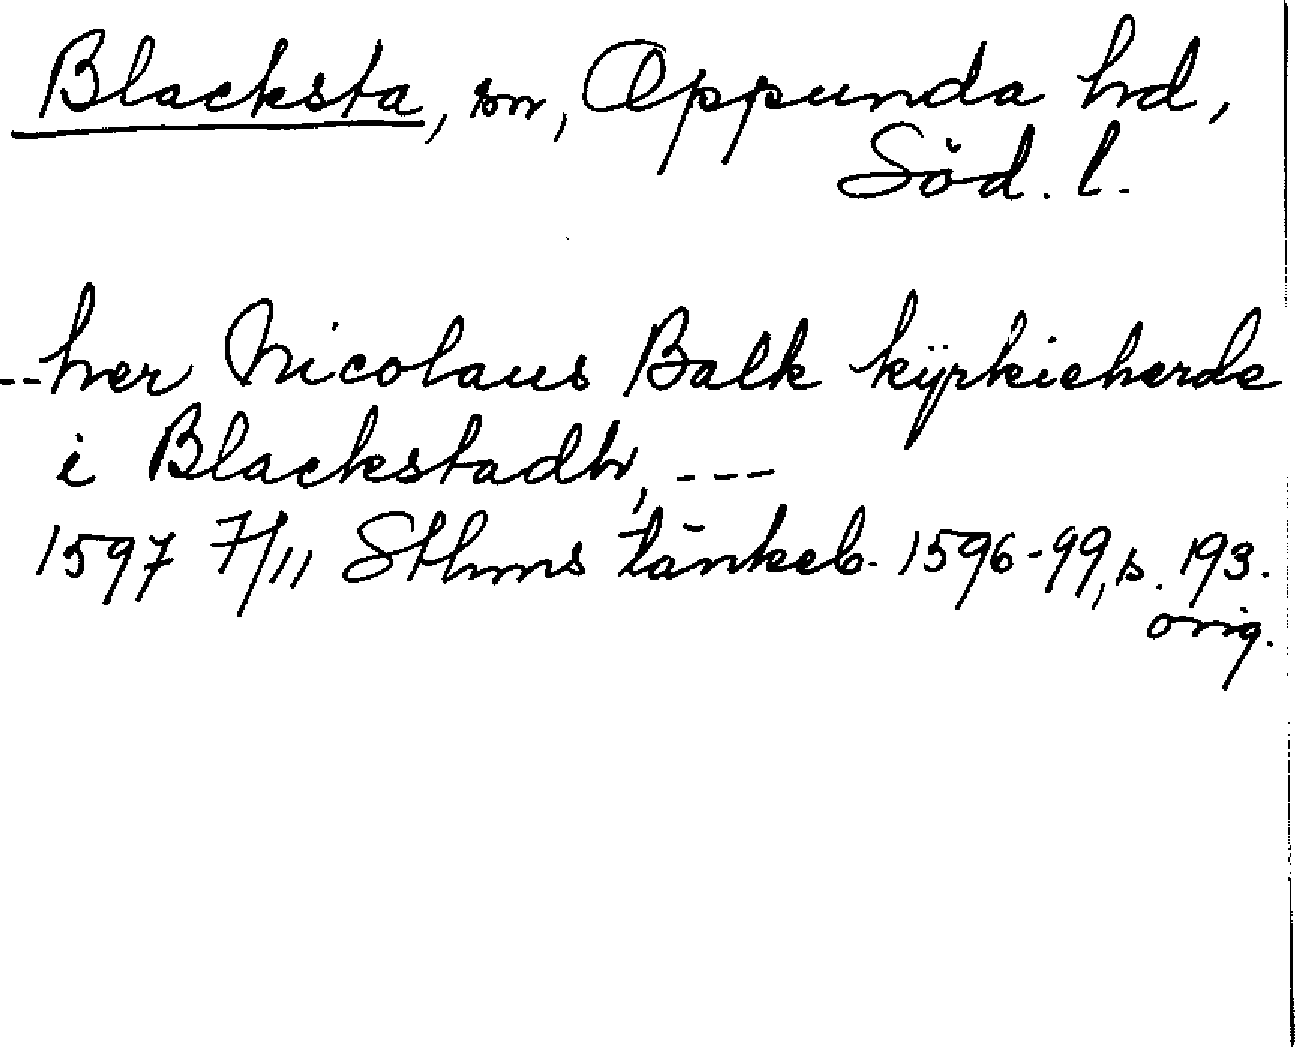 Blacksta, sn, Oppunda hd,
Söd. l.
--her Nicolaus Balk kÿrkieherde
i Blackstadh, ---
1597 7/11 Sthms tänkeb. 1596-99, s. 193.
orig.